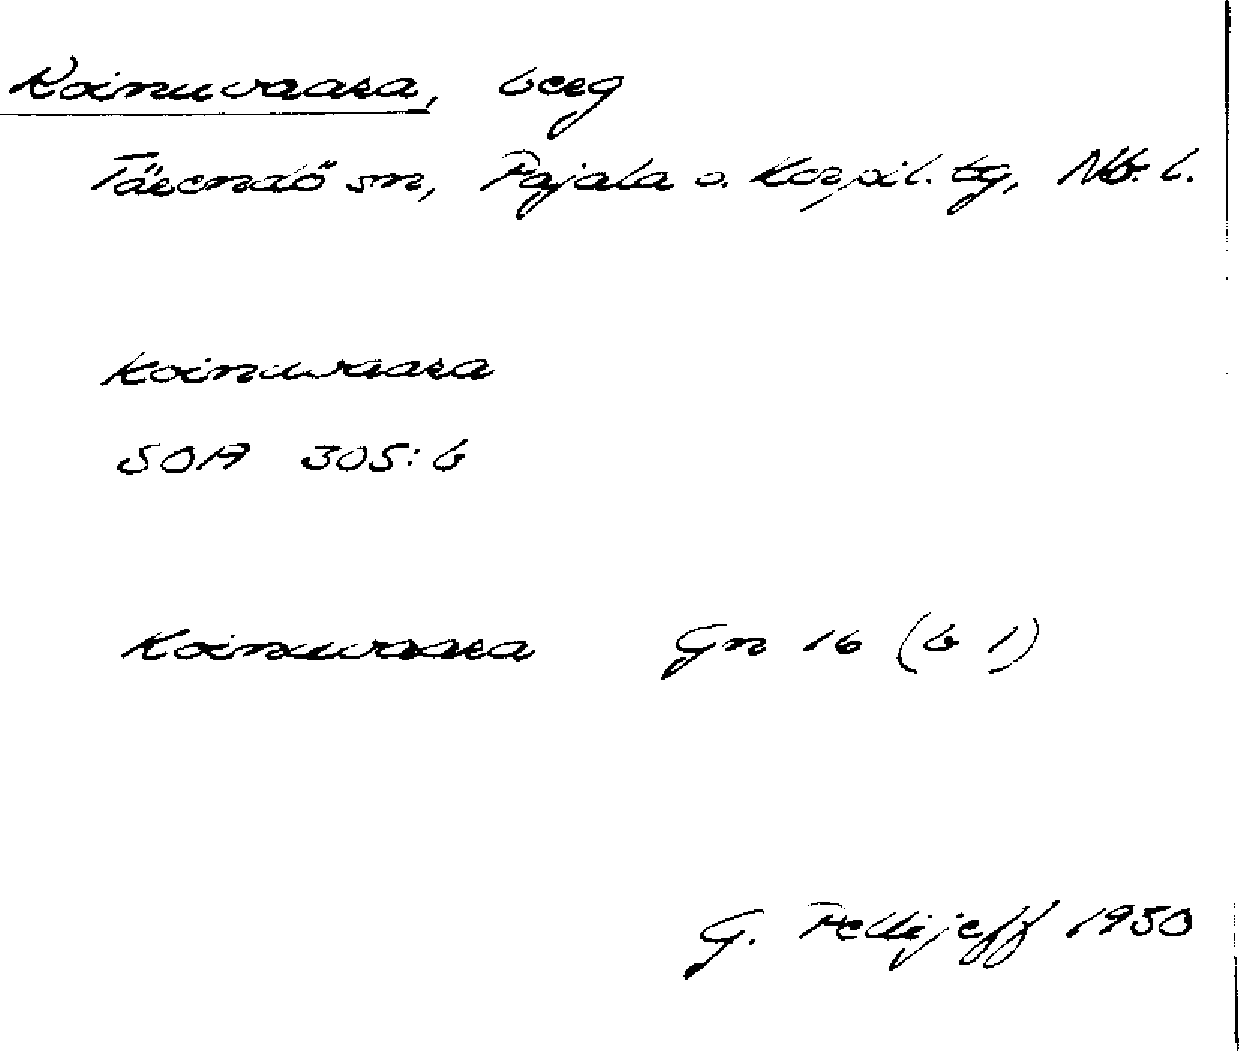 Koinuvaara, berg
Tärendö sn, Pajala o. Korpil. tg, Nb. l.
Koinuvaara
SOA 305:6
Koinuvaara Gn 16 (b 1)
G. Pellijeff 1950